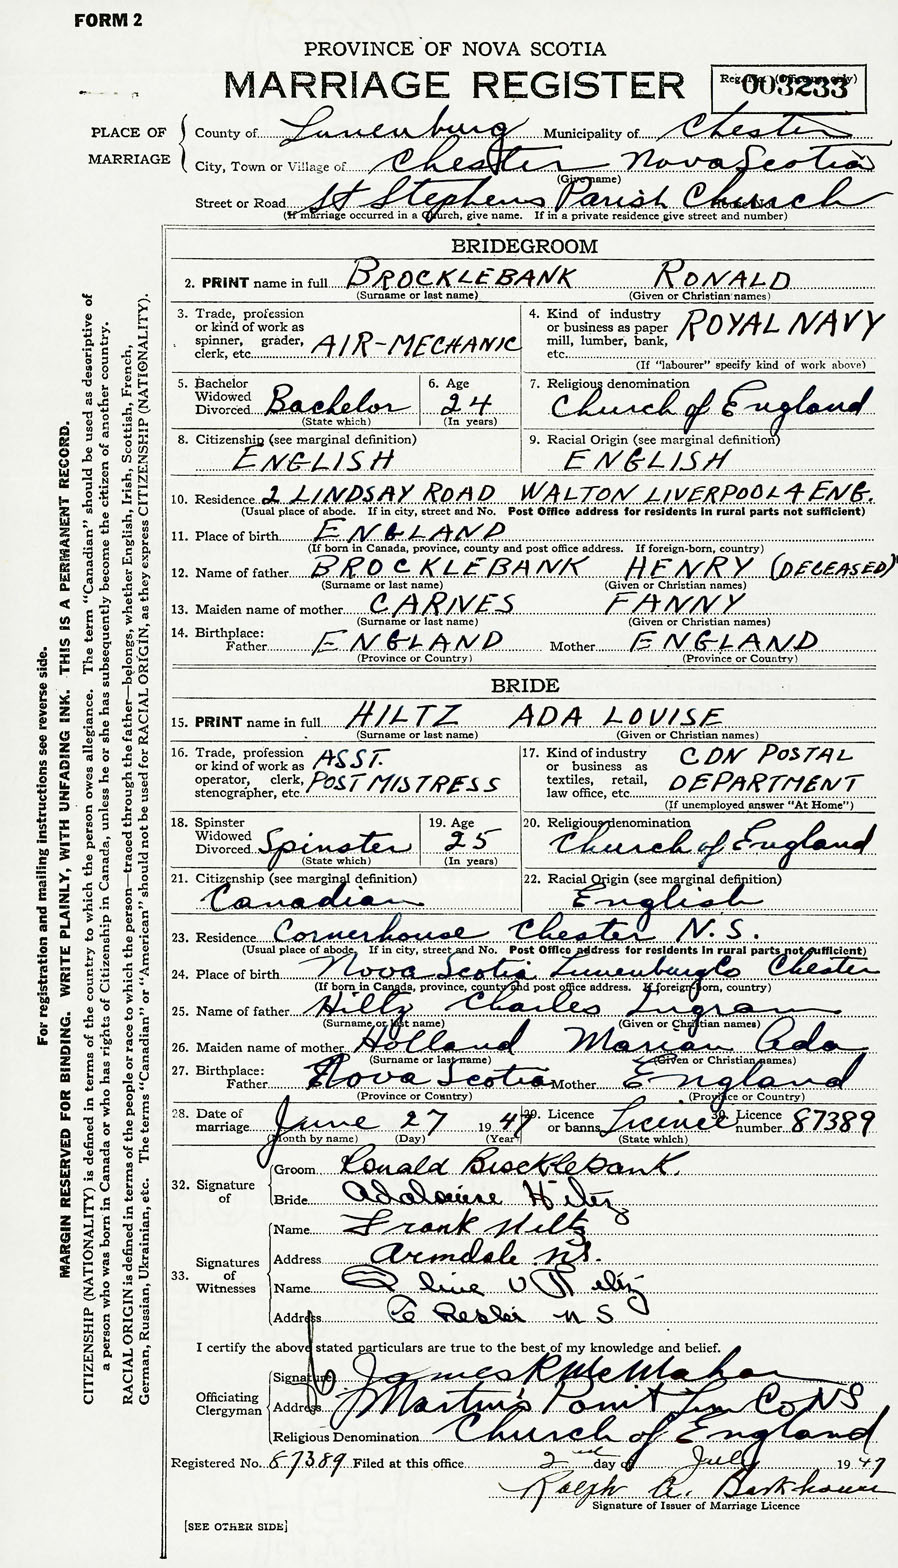 FORM 2
PROVINCE OF NOVA SCOTIA
MARRIAGE REGISTER
Reg. No. (Office use only)
003233
PLACE OF MARRIAGE
County of Lunenburg Municipality of Chester
City, Town or Village of Chester Nova Scotia
(Give name)
Street or Road St Stephens Parish Church
(If marriage occurred in a Church, give name. If in a private residence give street and number)
BRIDEGROOM
2. PRINT name in full BROCKLEBANK RONALD
(Surname or last name) (Given or Christian names)
3. Trade, profession or kind of work as spinner, grader, clerk, etc. AIR-MECHANIC
4. Kind of industry or business as paper mill, lumber, bank, etc. ROYAL NAVY
(If "labourer" specify kind of work above)
5. Bachelor Widowed Divorced Bachelor
(State which)
6. Age 24
(In years)
7. Religious denomination
Church of England
8. Citizenship (see marginal definition)
ENGLISH
9. Racial Origin (see marginal definition)
ENGLISH
10. Residence 2 LINDSAY ROAD WALTON LIVERPOOL 4 ENG.
(Usual place of abode. If in city, street and No. Post Office address for residents in rural parts not sufficient)
11. Place of birth ENGLAND
(If born in Canada, province, county and post office address. If foreign-born, country)
12. Name of father BROCKLEBANK HENRY (DECEASED)
(Surname or last name) (Given or Christian names)
13. Maiden name of mother CARNES FANNY
(Surname or last name) (Given or Christian names)
14. Birthplace:
Father ENGLAND Mother ENGLAND
(Province or Country) (Province or Country)
BRIDE
15. PRINT name in full HILTZ ADA LOUISE
(Surname or last name) (Given or Christian names)
16. Trade, profession or kind of work as operator, clerk, stenographer, etc. ASST. POSTMISTRESS
17. Kind of industry or business as textiles, retail, law office, etc. CDN POSTAL DEPARTMENT
(If unemployed answer "At Home")
18. Spinster Widowed Divorced Spinster
(State which)
19. Age 25
(In years)
20. Religious denomination
Church of England
21. Citizenship (see marginal definition)
Canadian
22. Racial Origin (see marginal definition)
English
23. Residence Cornerhouse Chester N.S.
(Usual place of abode. If in city, street and No. Post Office address for residents in rural parts not sufficient)
24. Place of birth Nova Scotia Lunenburg Co Chester
(If born in Canada, province, county and post office address. If foreign-born, country)
25. Name of father Hiltz Charles Ingram
(Surname or last name) (Given or Christian names)
26. Maiden name of mother Holland Marian Ada
(Surname or last name) (Given or Christian names)
27. Birthplace:
Father Nova Scotia Mother England
(Province or Country) (Province or Country)
28. Date of marriage June 27 1947
(Month by name) (Day) (Year)
29. Licence or banns Licence
(State which)
30. Licence number 87389
32. Signature of
Groom Ronald Brocklebank.
Bride Ada Louise Hiltz
33. Signatures of Witnesses
Name Frank Hiltz
Address Armdale N.S.
Name
Address Chester N S
I certify the above stated particulars are true to the best of my knowledge and belief.
Officiating Clergyman
Signature James R McMahon
Address Martin's Point Lun Co NS
Religious Denomination Church of England
Registered No. 87389 Filed at this office 2nd day of July 1947
Ralph A. Barkhouse
Signature of Issuer of Marriage Licence
[SEE OTHER SIDE]
For registration and mailing instructions see reverse side.
MARGIN RESERVED FOR BINDING. WRITE PLAINLY, WITH UNFADING INK. THIS IS A PERMANENT RECORD.
CITIZENSHIP (NATIONALITY) is defined in terms of the country to which the person owes allegiance. The term "Canadian" should be used as descriptive of
a person who was born in Canada or who has rights of Citizenship in Canada, unless he or she has subsequently become the citizen of another country.
RACIAL ORIGIN is defined in terms of the people or race to which the person—traced through the father—belongs, whether English, Irish, Scottish, French,
German, Russian, Ukrainian, etc. The terms "Canadian" or "American" should not be used for RACIAL ORIGIN, as they express CITIZENSHIP (NATIONALITY).